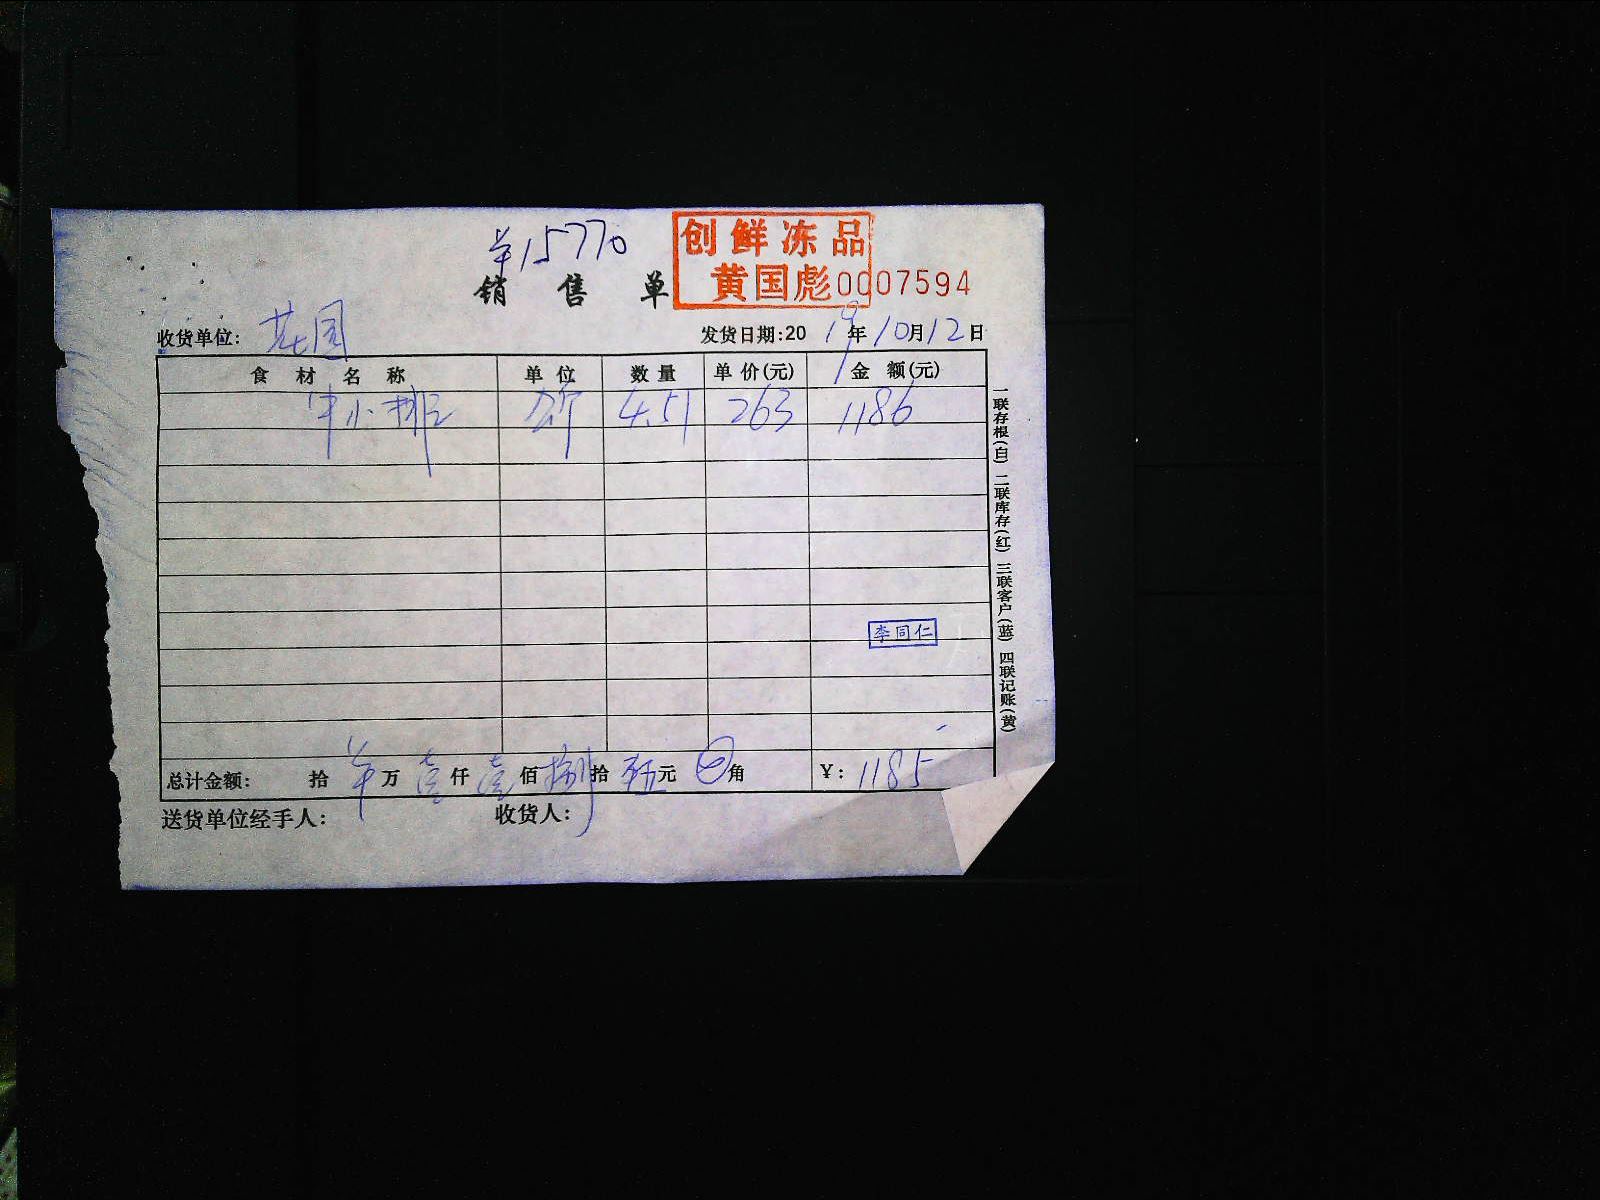 羊15770
创鲜冻品
黄国彪
销售单 0007594
收货单位: 花园 发货日期:20 19年10月12日
食材名称 单位 数量 单价(元) 金额(元)
牛小排 公斤 4.51 263 1186
李同仁
总计金额: 拾 羊万 壹仟 壹佰 捌拾 伍元 角 ¥: 1185
送货单位经手人: 收货人:
一联存根(白) 二联库存(红) 三联客户(蓝) 四联记账(黄)